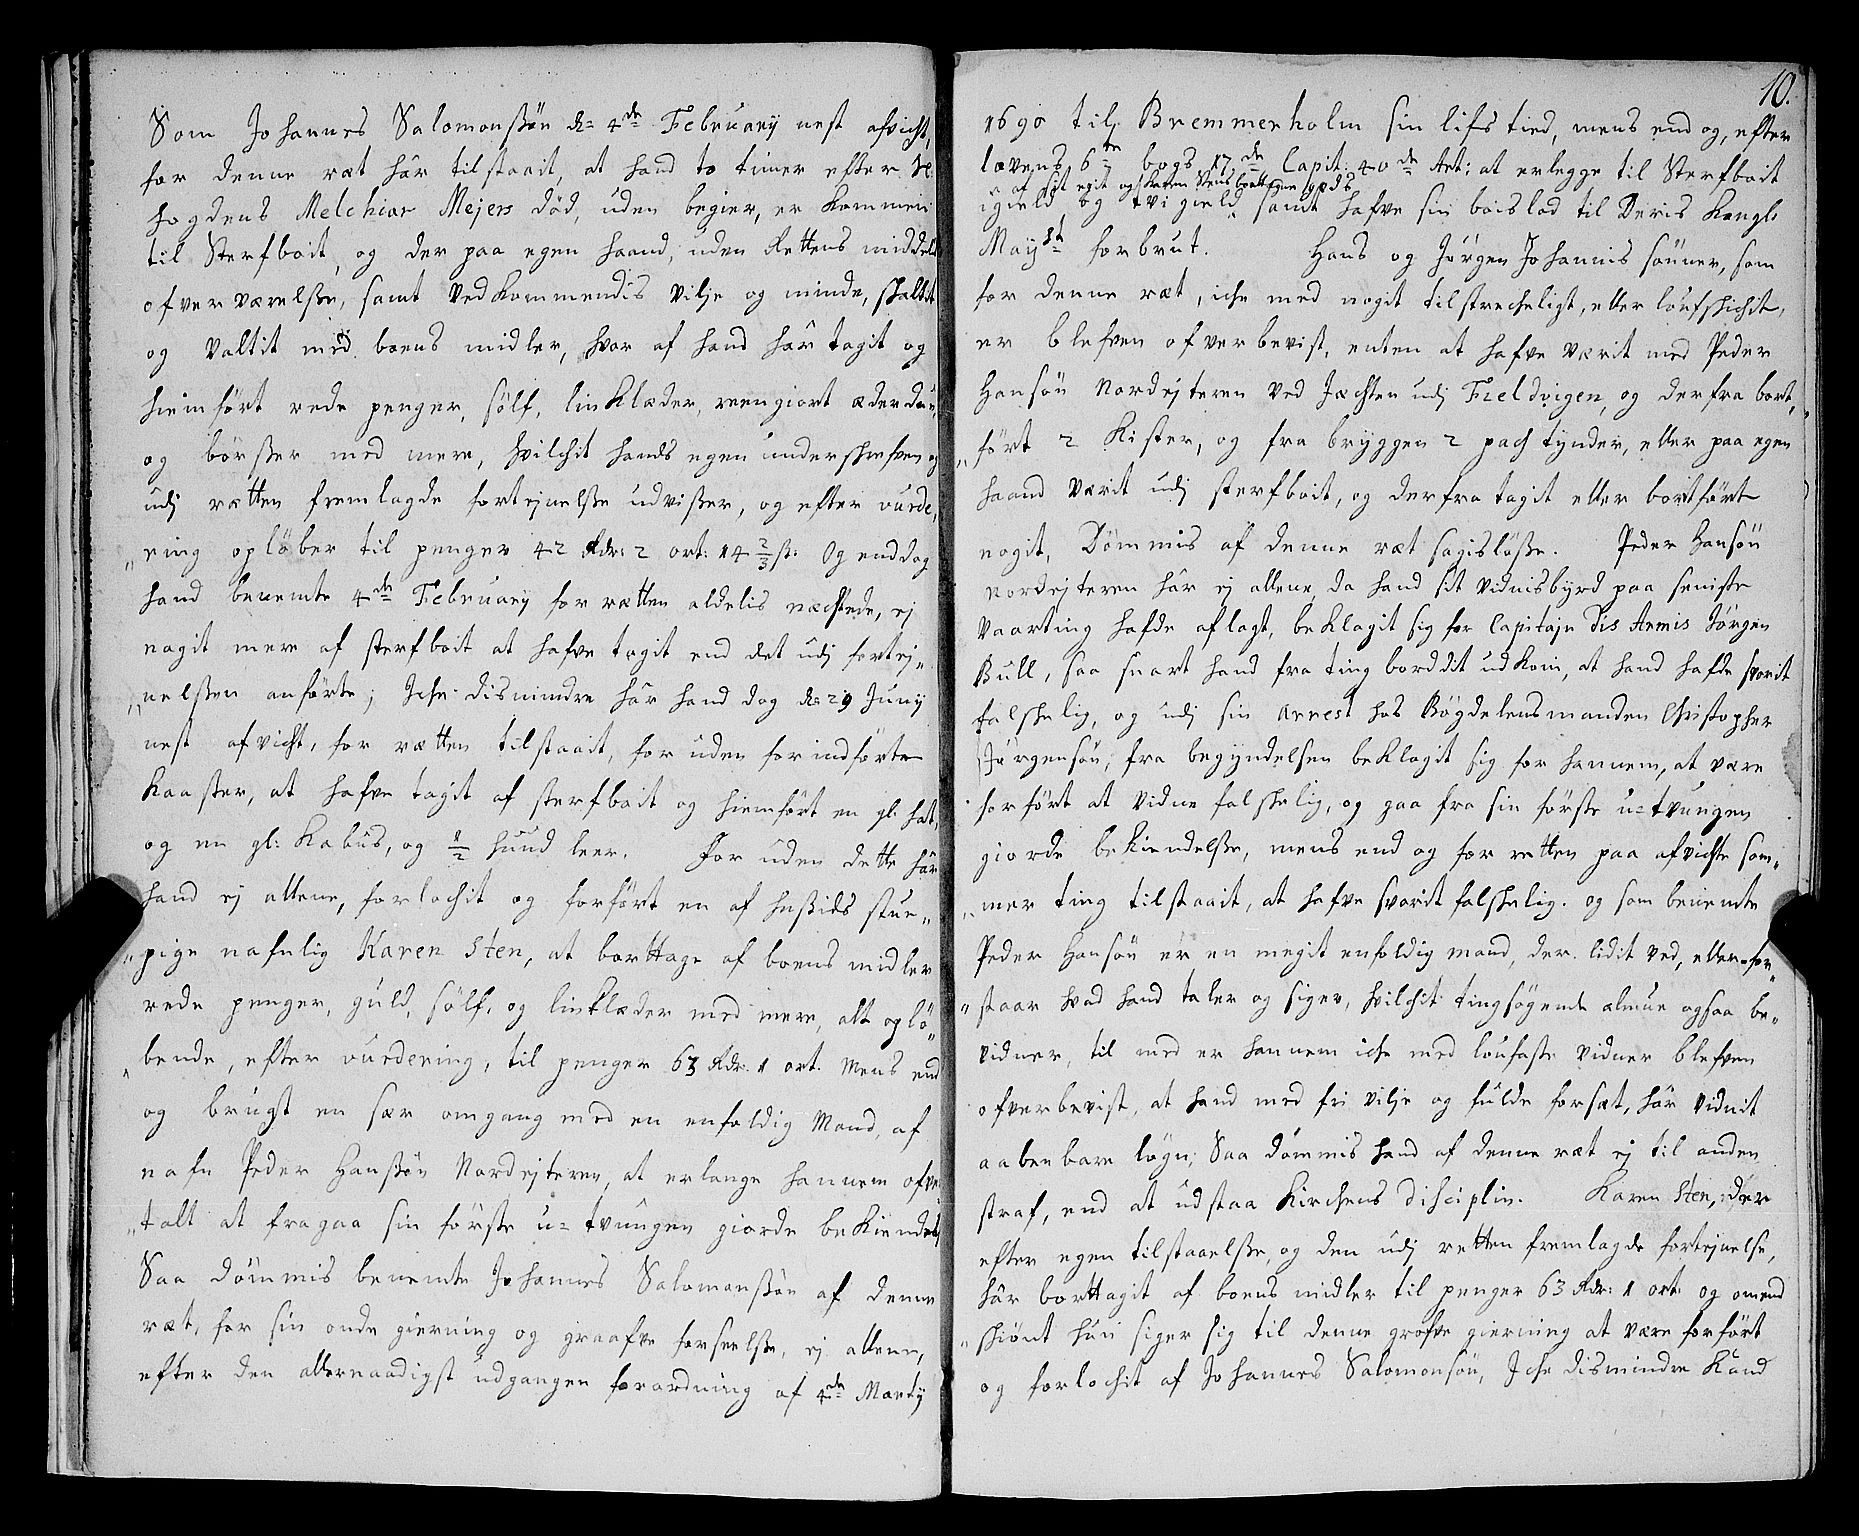 Som Johannes Salomonssøn d: 4de February nest afvicht,
for denne ræt har tilstaait, at hand to timer efter Sl.
fogdens Melchior Mejers død, uden begier, er Kommen
til Sterfboit, og der paa egen haand, uden Rettens middels
ofverværelsse, samt VedKommendis Vilje og minde, skaltit
og Valtit med boens midler, hvor af hand har tagit og
hiemført rede penger, sølf, linKlæder, reengiort æderdun,
og børsser med mere, hvilchit hands egen underskrefven og
udj rætten fremlagde fortejnelsse udvisser, og efter vurde,
„ring opløber til penger 42 Rdr: 2 ort: 14 2/3 sk: Og enddog
hand benemte 4de February for rætten aldelis nechtede, ej
nogit mere af sterfboit at hafve tagit end det udj fortej„
„nelssen anførte; Iche dismindre har hand dog d: 29 Juny
nest afvicht, for rætten tilstaait, for uden forindførte
Kaaster, at hafve tagit af sterfboit og hiemført en gl: hat,
og en gl: Kabus, og 1/2 huud leer. For uden dette har
hand ej allene, forlochit og forført en af hussids stue„
„pige nafnlig Karen Sten, at borttage af boens midler
rede penger, guld, sølf, og linKlæder med mere, alt oplø„
„bende, efter vurdering, til penger 63 Rdr. 1 ort. Mens end
og brugt en sær omgang med en enfoldig Mand, af
nafn Peder Hanssøn Nordejteren, at erlange hannem ofver„
„talt at fragaa sin første u=tvungen giorde beKiendelse
Saa dømmis benemte Johannes Salomonssøn af denne
ræt, for sin onde gierning og graafve forseelsse, ej allene,
efter den allernaadigst udgangen forordning af 4de Marty
10.
1690 til Bremmerholm sin lifs tied, mens end og, efter
lovens 6te bogs 17de Capit: 40de Art: at erlegge til Sterfboit
af sit egit og Karen Stens bortstaalne gods
igield og tvi gield, samt hafve sin boislod til Deris Kongl:
Mayst forbrut. Hans og Jørgen Johannis sønner, som
for denne ræt, iche med nogit tilstrecheligt, eller loufskichit,
er blefven ofverbevist, enten at hafve værit med Peder
Hansøn Nordejteren Ved Jæchten udj Fieldvigen, og derfra bort,
„ført 2 Kister, og fra bryggen 2 pach tynder, eller paa egen
haand værit udj sterfboit, og derfra tagit eller bortført
nogit, Dømmis af denne ræt sagisløsse. Peder Hansøn
Nordejteren har ej allene, da hand sit vidnisbyrd paa seniste
Vaarting hafde aflagt, beKlagit sig for Capitajn Dis Armis Jørgen
Bull, saa snart hand fra ting borddit udKom, at hand hafde svorit
falskelig, og udj sin Arrest hos Bøgdelensmanden Christopher
Jørgensøn, fra begyndelsen beKlagit sig for hannem, at være
forført at Vidne falskelig, og gaa fra sin første u=tvungen
giorde beKiendelsse, mens end og for retten paa afvichte som„
„mer ting tilstaait, at hafve svorit falskelig. og som benemte
Peder Hansøn er en megit enfoldig mand, der lidit Ved, eller for„
„staar hvad hand taler og siger, hvilchit tingsøgende almue ogsaa be„
vidner, til med er hannem iche med loufaste Vidner blefven
ofverbevist, at hand med fri Vilje og fulde forsæt, har Vidnit
aabenbare løgn; Saa dømmis hand af denne ræt ej til anden
straf, end at udstaa Kirchens disciplin. Karen Sten, der
efter egen tilstaaelsse, og den udj retten fremlagde fortejnelse,
har borttagit af boens midler til penger 63 Rdr: 1 ort: og omend
„skiønt hun siger sig til denne grofve gierning at være forført
og forlochit af Johannes Salomonsøn, Iche dismindre Kand